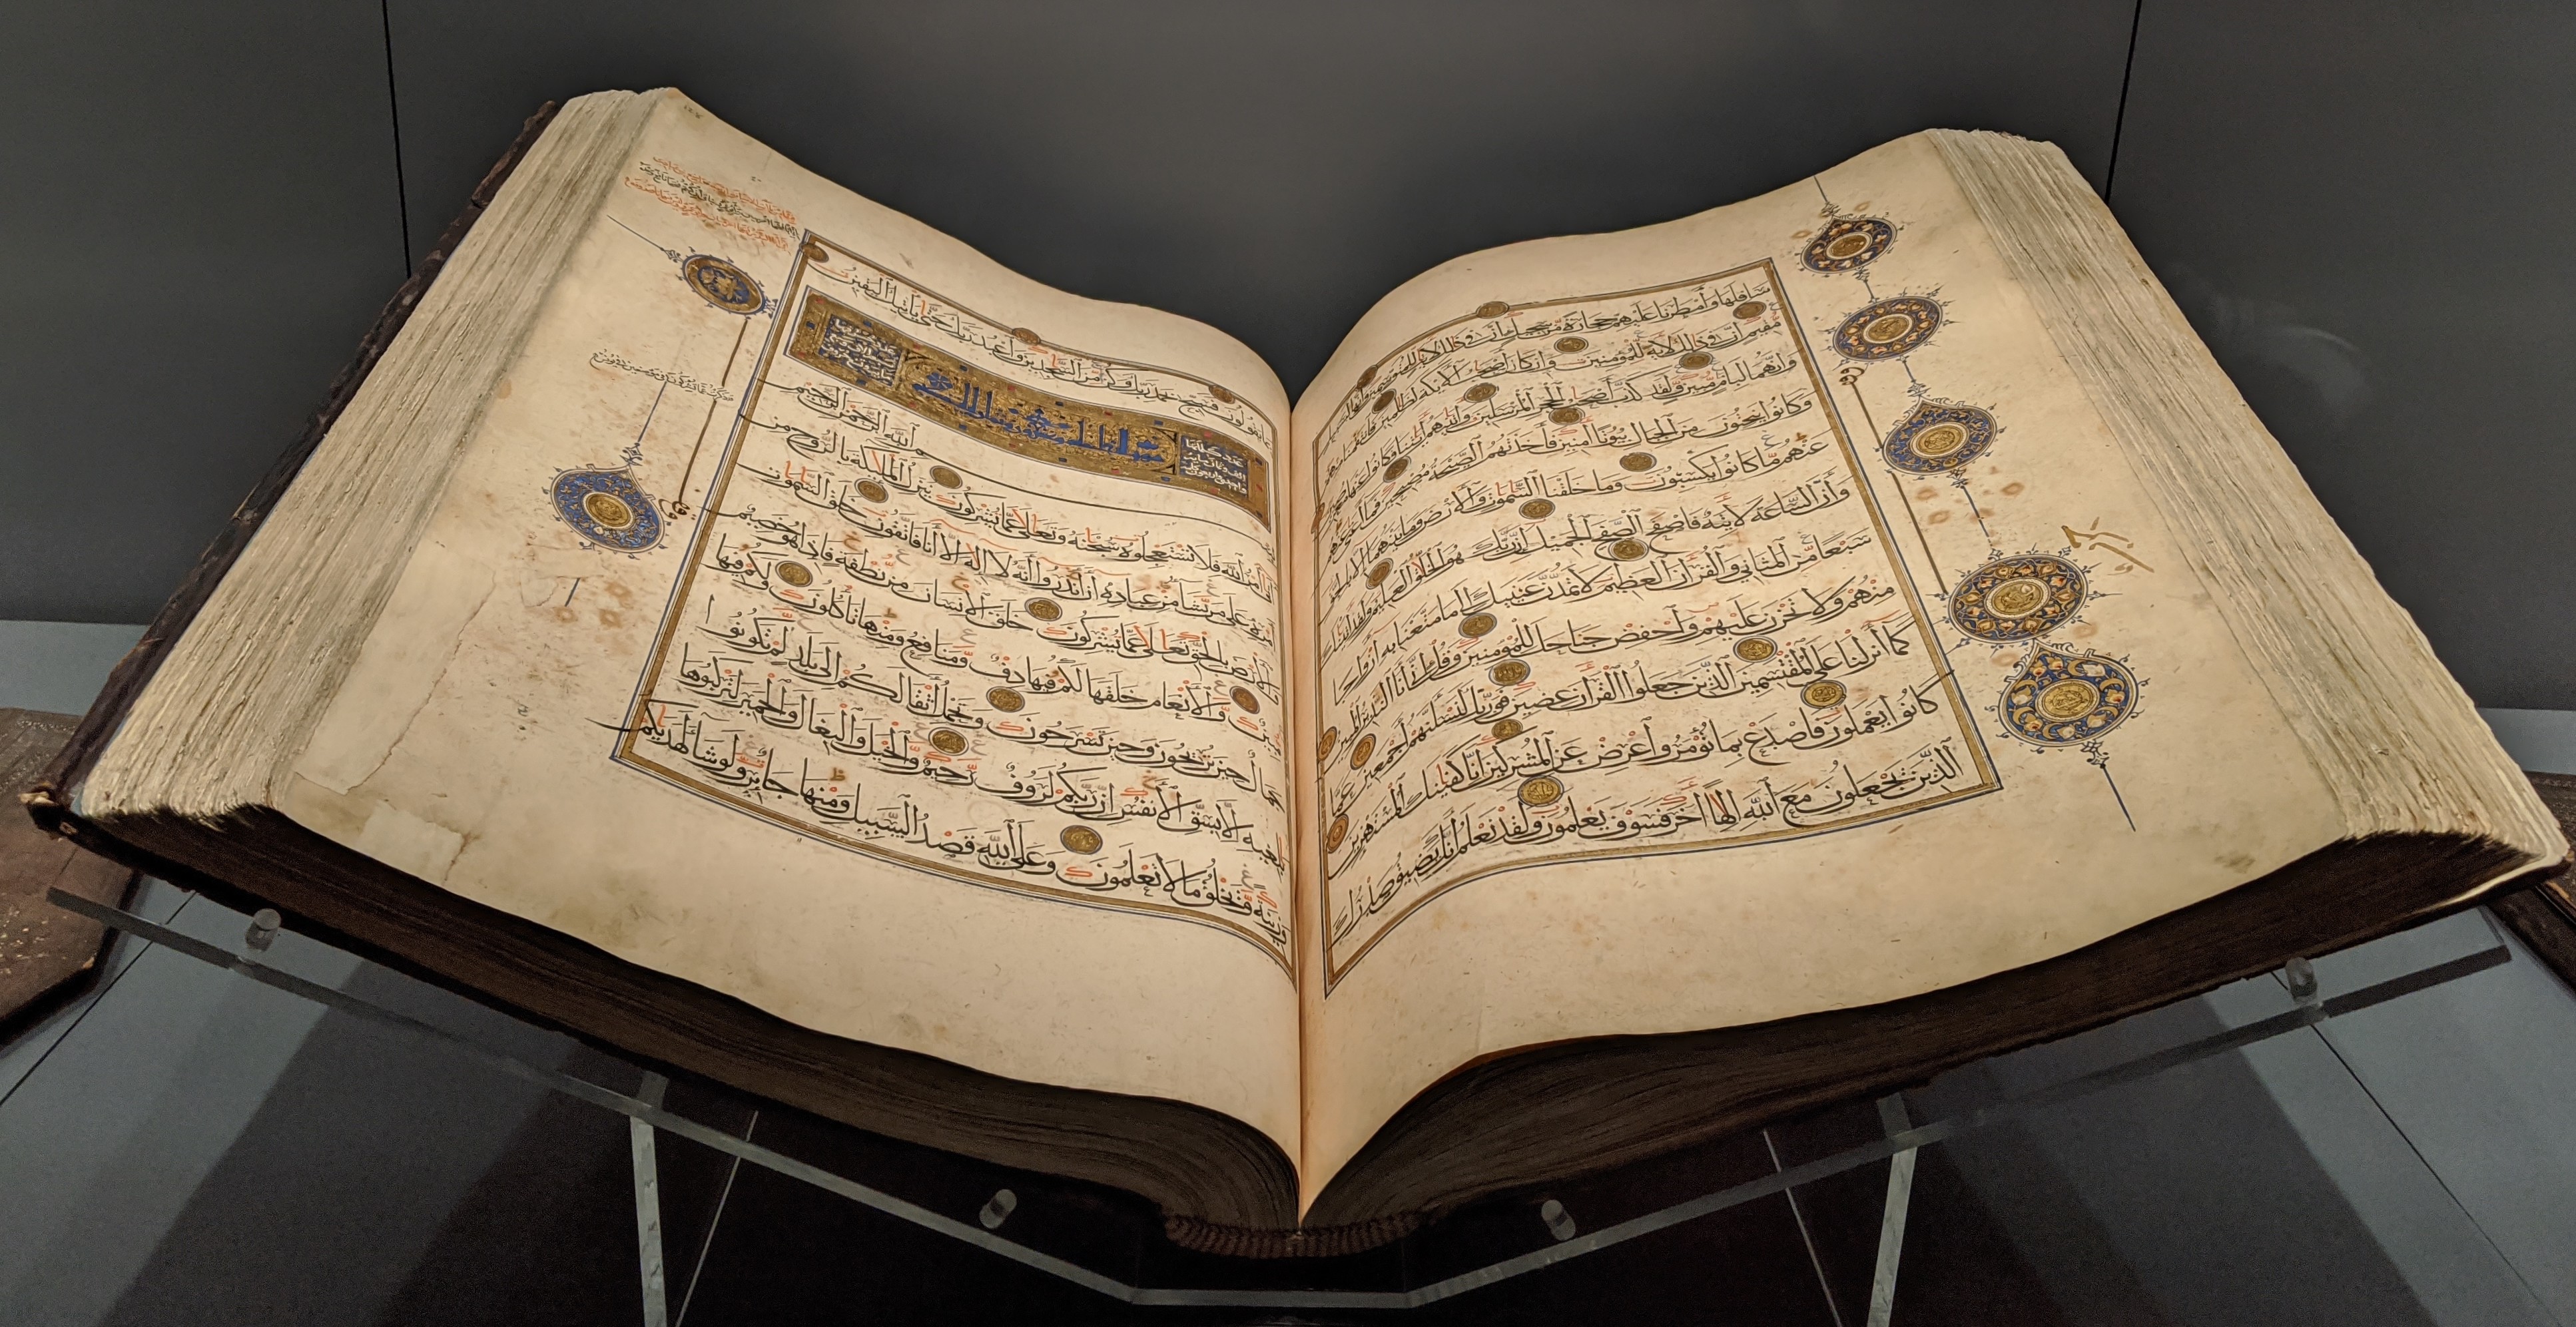 سافلها وأمطرنا عليهم حجارة من سجيل إن في ذلك لآيات للمتوسمين وإنها لبسبيل
مقيم إن في ذلك لآية للمؤمنين وإن كان أصحب الأيكة لظلمين فانتقمنا منهم
وإنهما لبإمام مبين ولقد كذب أصحب الحجر المرسلين وآتينهم آيتنا فكانوا عنها معرضين
وكانوا ينحتون من الجبال بيوتا آمنين فأخذتهم الصيحة مصبحين فما أغنى
عنهم ما كانوا يكسبون وما خلقنا السموت والأرض وما بينهما إلا بالحق
وإن الساعة لآتية فاصفح الصفح الجميل إن ربك هو الخلق العليم ولقد آتينك
سبعا من المثاني والقرآن العظيم لا تمدن عينيك إلى ما متعنا به أزواجا
منهم ولا تحزن عليهم واخفض جناحك للمؤمنين وقل إني أنا النذير المبين
كما أنزلنا على المقتسمين الذين جعلوا القرآن عضين فوربك لنسئلنهم أجمعين عما
كانوا يعملون فاصدع بما تؤمر وأعرض عن المشركين إنا كفينك المستهزئين
الذين يجعلون مع الله إلها آخر فسوف يعلمون ولقد نعلم أنك يضيق صدرك
بما يقولون فسبح بحمد ربك وكن من السجدين واعبد ربك حتى يأتيك اليقين
بسم الله الرحمن الرحيم
أتى أمر الله فلا تستعجلوه سبحنه وتعلى عما يشركون ينزل الملئكة بالروح من
أمره على من يشاء من عباده أن أنذروا أنه لا إله إلا أنا فاتقون خلق السموت
والأرض بالحق تعلى عما يشركون خلق الإنسان من نطفة فإذا هو خصيم
مبين والأنعام خلقها لكم فيها دفء ومنافع ومنها تأكلون ولكم فيها
جمال حين تريحون وحين تسرحون وتحمل أثقالكم إلى بلد لم تكونوا
بالغيه إلا بشق الأنفس إن ربكم لرؤوف رحيم والخيل والبغال والحمير لتركبوها
وزينة ويخلق ما لا تعلمون وعلى الله قصد السبيل ومنها جائر ولو شاء لهديكم